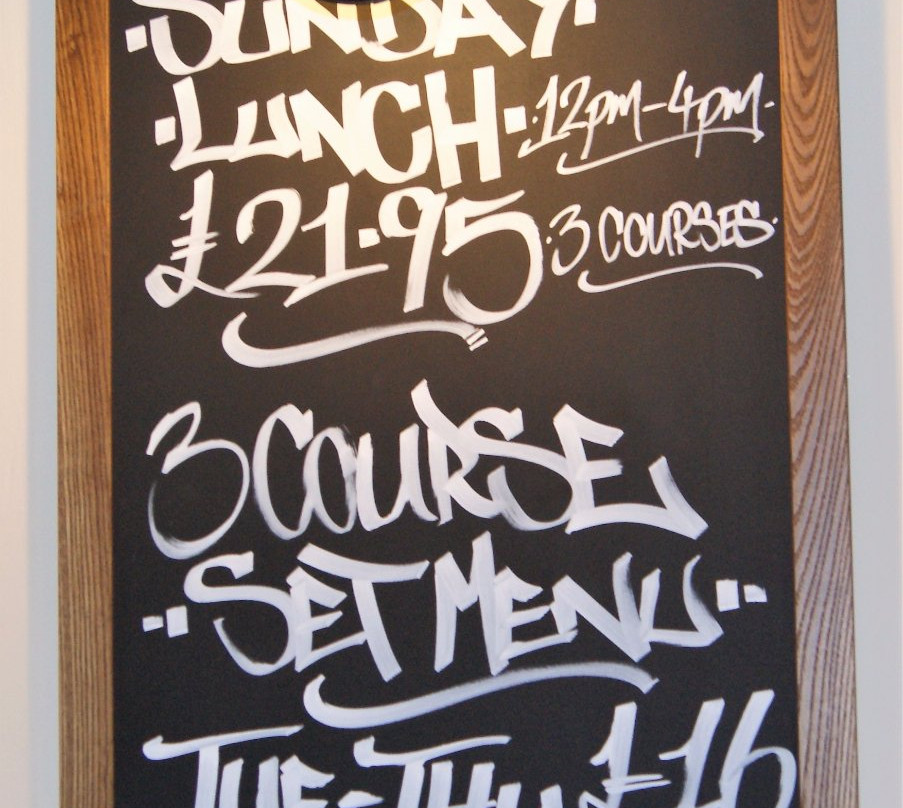 ·SUNDAY·
·LUNCH· ·12pm-4pm·
£21·95 ·3 COURSES·
3 COURSE
··SET MENU··
TUE-THU £16